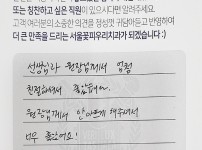 또는 칭찬하고 싶은 직원이 있으시다면 알려주세요.
고객 여러분의 소중한 의견을 정성껏 귀담아듣고 반영하여
더 큰 만족을 드리는 서울꿈피우리치과가 되겠습니다 :)
선생님과 원장님께서 엄청
친절하셔서 좋았어요.
원장님께서 안아프게 해주셔서
너무 좋았어요!